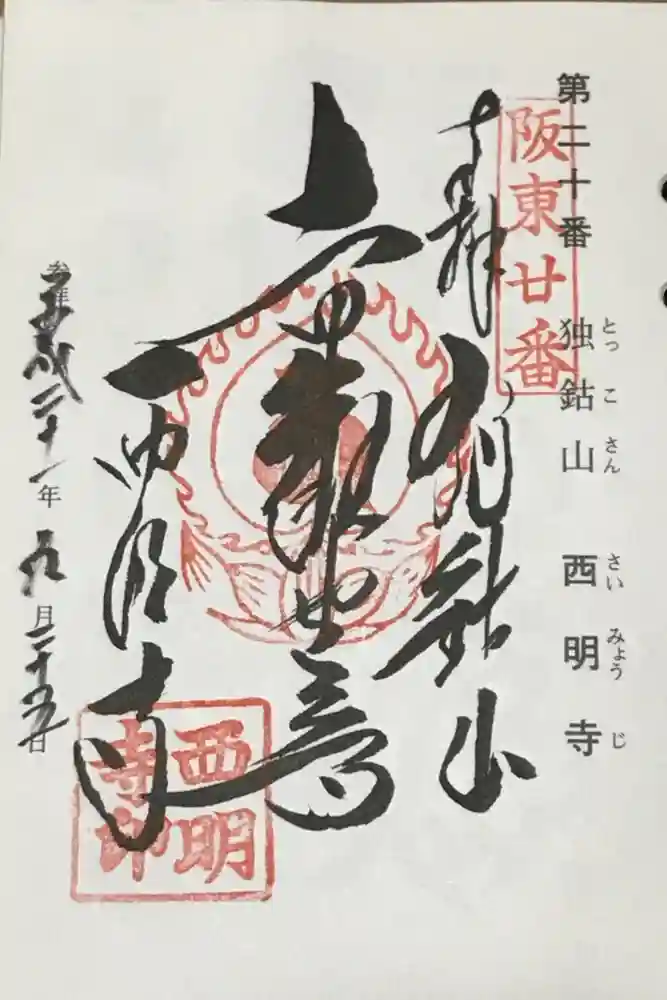 第二十番 独鈷山 西明寺
とっ こ さん さい みょう じ
阪東廿番
奉拝 独鈷山
西明寺
西明
寺印
平成二十一年九月二十五日